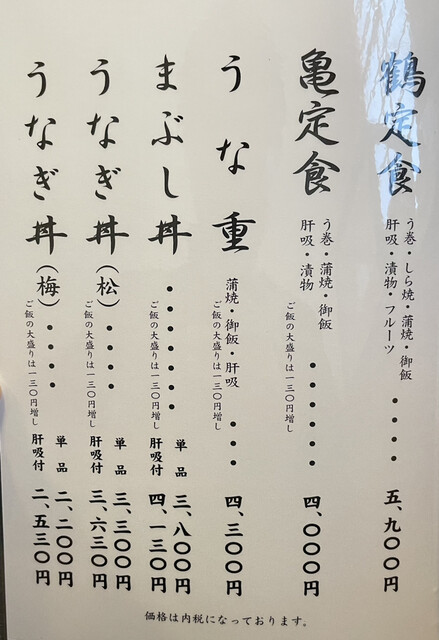 鶴定食
う巻・しら焼・蒲焼・御飯
肝吸・漬物・フルーツ
・・・・
五、九〇〇円
亀定食
う巻・蒲焼・御飯
肝吸・漬物
ご飯の大盛りは一三〇円増し
・・・・・・
四、〇〇〇円
うな重
蒲焼・御飯・肝吸
ご飯の大盛りは一三〇円増し
・・・
四、三〇〇円
まぶし丼
・・・・・・・
ご飯の大盛りは一三〇円増し
単品 三、八〇〇円
肝吸付 四、一三〇円
うなぎ丼(松)
・・・・
ご飯の大盛りは一三〇円増し
単品 三、三〇〇円
肝吸付 三、六三〇円
うなぎ丼(梅)
・・・・
ご飯の大盛りは一三〇円増し
単品 二、二〇〇円
肝吸付 二、五三〇円
価格は内税になっております。